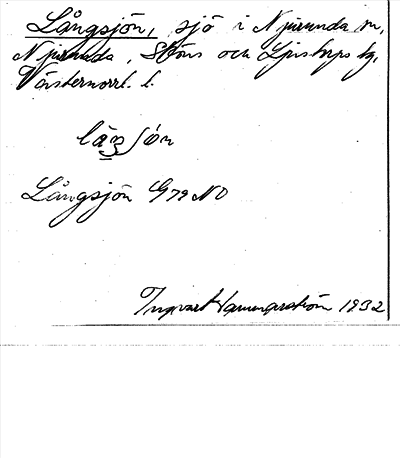 Långsjön, sjö i Njurunda sn,
Njurunda, Sköns och Ljustorps tg,
Västernorrl. l.
låŋ ʃön
Långsjön G 79 NO
Ingvart Hammarström 1932